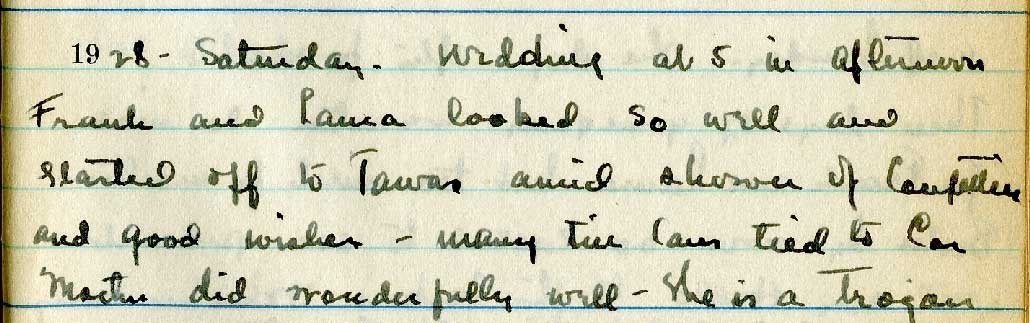 1928 - Saturday. Wedding at 5 in afternoon
Frank and looked so well and
started off to Tawas amid shower of Confetti
and good wishes - many tin cans tied to Car
did wonderfully well - She is a Trojan